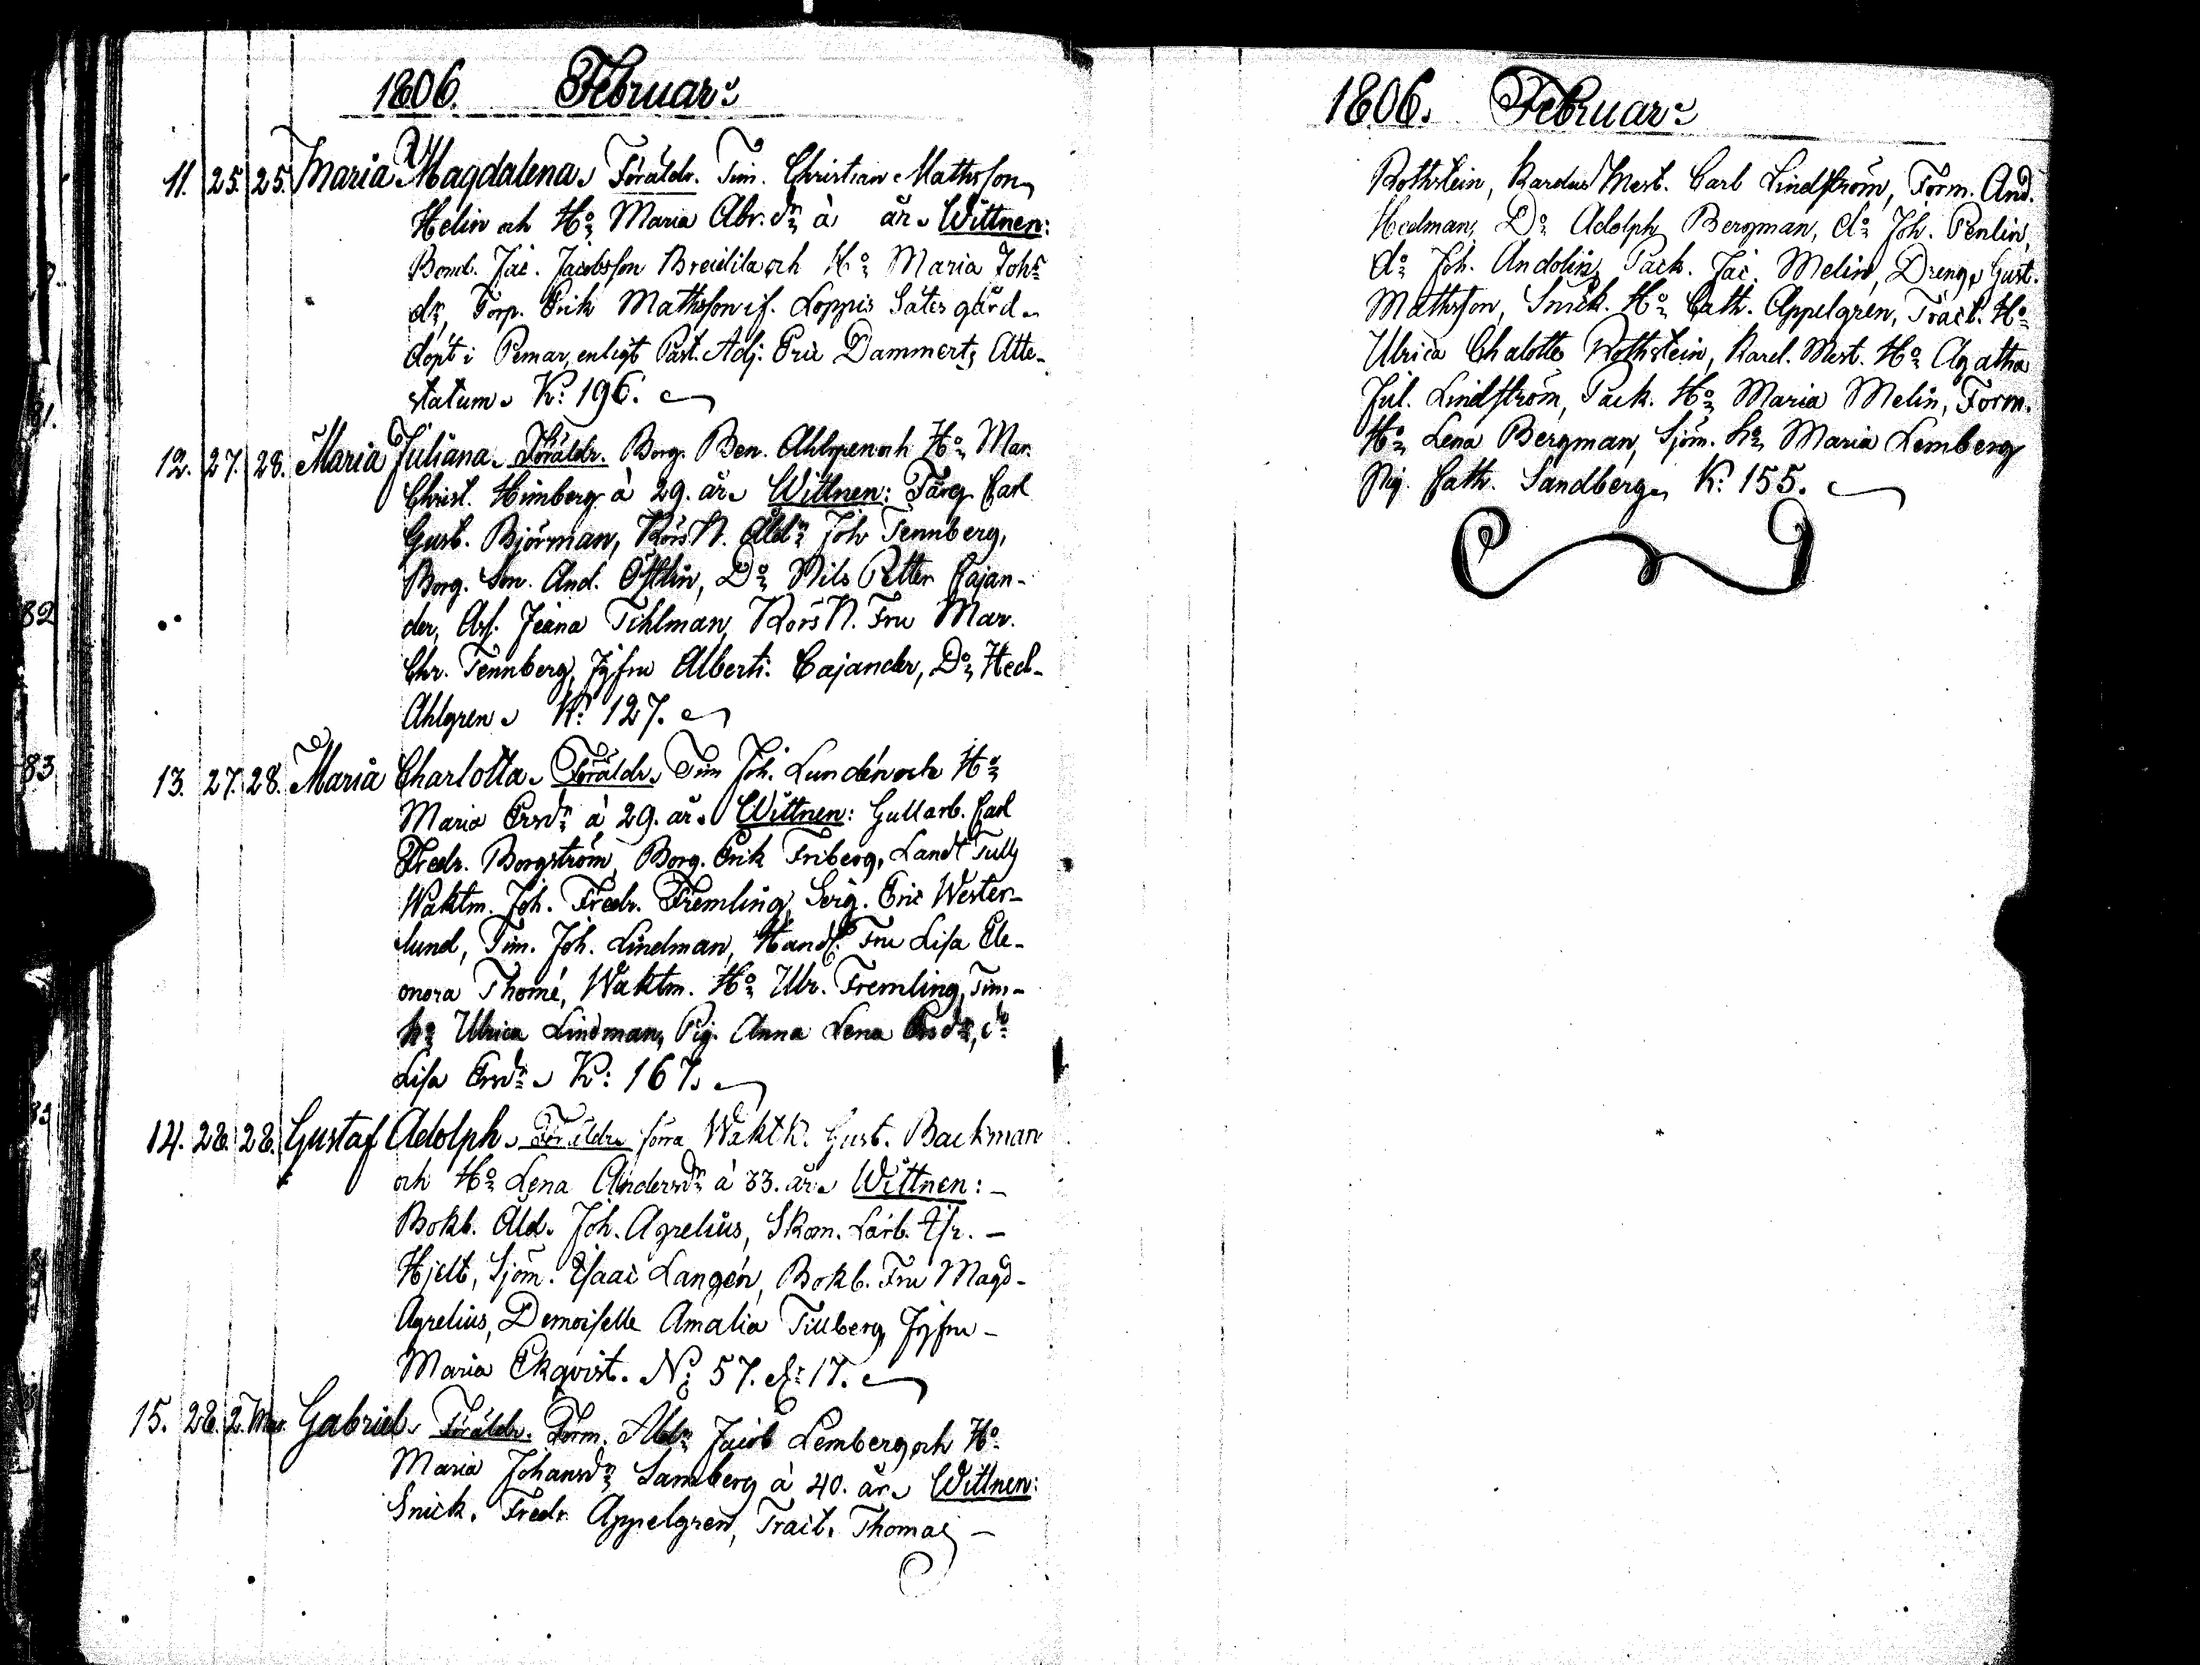 1806. Februar:
11. 25. 25. Maria Magdalena. Föräldr. Tim. Christian Mathsson
Helin och Ho: Maria Abr.dr: à år. Wittnen:
Bond. Jac. Jacobsson Breidila och Ho: Maria Johs
dr, Torp. Erik Mathsson if. Loppis Sätesgård.
döpt i Pemar, enligt Past. Adj: Eric Dammerts Atte-
statum. K: 196.
12. 27. 28. Maria Juliana. Föräldr. Borg. Ben. Ahlgren och Ho: Mar.
Christ. Himberg à 29. år. Wittnen: Färg. Carl
Gust. Björman, KörsN. Åldn: Joh Tennberg,
Borg. Son. And. Östlin, Do: Nils Petter Cajan-
der, Arf. Jeana Tihlman, KörsN. Fru Mar.
Chr. Tennberg, Jgfru Albert: Cajander, Do: Hed-
Ahlgren. K: 127.
13. 27. 28. Maria Charlotta. Föräldr. Tim Joh. Lundén och Ho:
Maria Ersdr: à 29. år. Wittnen: Gullarb. Carl
Fredr. Borgström, Borg. Erik Friberg, Landt Tull
Waktm. Joh. Fredr. Fremling, Serg. Eric Wester-
lund, Tim. Joh. Lindman, Handl: Fru Lisa Ele-
onora Thomé, Waktm. Ho: Ulr. Fremling, Tim-
ho: Ulrica Lindman, Pig. Anna Lena Ersdr:, do:
Lisa Ersdr: K: 167.
14. 28. 28. Gustaf Adolph. Föräldr. förra Waktk. Gust. Backman
och Ho: Lena Andersdr: à 33. år. Wittnen: -
Bokb. Åld. Joh. Agrelius, Skom. Lärb. Isr. -
Hjelt, Sjöm. Isaac Langén, Bokb. Fru Magd-
Agrelius, Demoiselle Amalia Tillberg, Jgfru -
Maria Ekqvist. N: 57. K: 17.
15. 28. 2. Mar. Gabriel. Föräldr. Form. Åldn: Jacob Lemberg och Ho:
Maria Johansdr: Samberg à 40. år. Wittnen:
Snick. Fredr. Appelgren, Tract. Thomas -
1806. Februar:
Rothstein, Kardus Mest. Carl Lindström, Form. And.
Hedman, Do: Adolph Bergman, do: Joh. Penlin,
do: Joh. Andolin, Pack. Jac. Melin, Dreng. Gust.
Mathsson, Snick. Ho: Cath. Appelgren, Tract. Ho:
Ulrica Chalotte Rothstein, Kard. Mest. Ho: Agatha
Jul. Lindström, Pack. Ho: Maria Melin, Form.
Ho: Lena Bergman, Sjöm. ho: Maria Lemberg
Pig. Cath. Sandberg. K: 155.